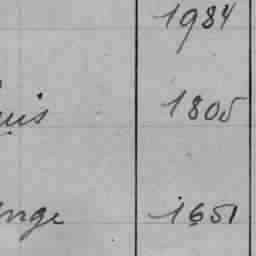 1984
uis 1805
inge 1651